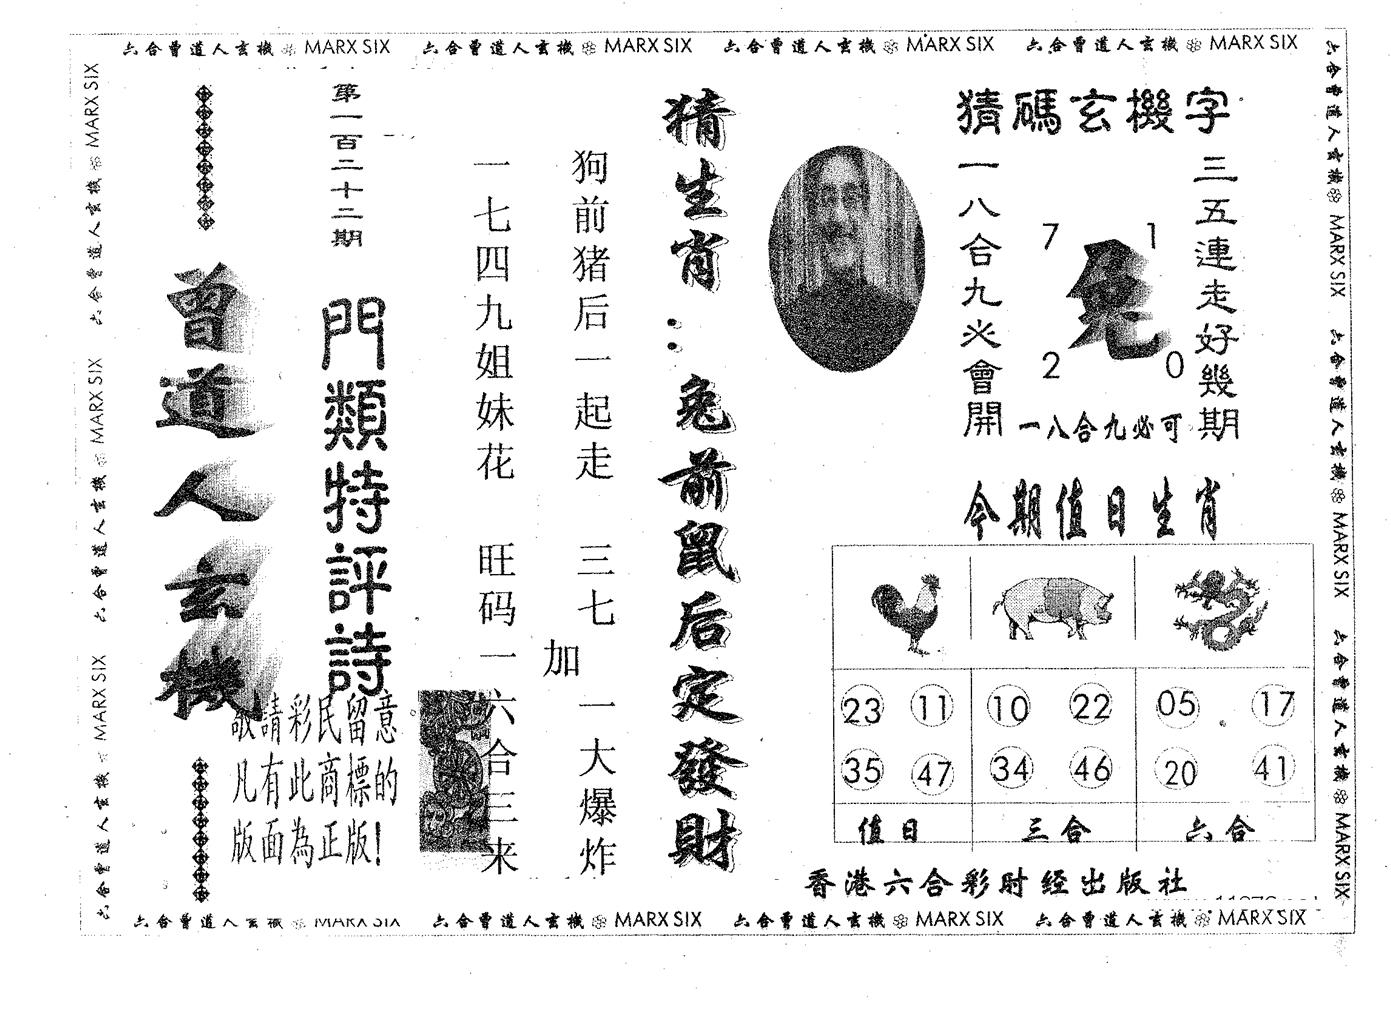 六合曾道人玄機 MARX SIX 六合曾道人玄機 MARX SIX 六合曾道人玄機 MARX SIX 六合曾道人玄機 MARX SIX
六合曾道人玄機 MARX SIX 六合曾道人玄機 MARX SIX 六合曾道人玄機 MARX SIX
猜碼玄機字
三五連走好幾期
一八合九必會開
7 1
兔
2 0
一八合九必可
今期值日生肖
23 11 10 22 05 17
35 47 34 46 20 41
值日 三合 六合
香港六合彩财经出版社
猜生肖：兔前鼠后定發財
狗前猪后一起走 三七加一大爆炸
一七四九姐妹花 旺码一六合三来
第一百二十二期
門類特評詩
曾道人玄機
敬請彩民留意
凡有此商標的
版面為正版!
六合曾道人玄機 MARX SIX 六合曾道人玄機 MARX SIX 六合曾道人玄機 MARX SIX
六合曾道人玄機 MARX SIX 六合曾道人玄機 MARX SIX 六合曾道人玄機 MARX SIX 六合曾道人玄機 MARX SIX